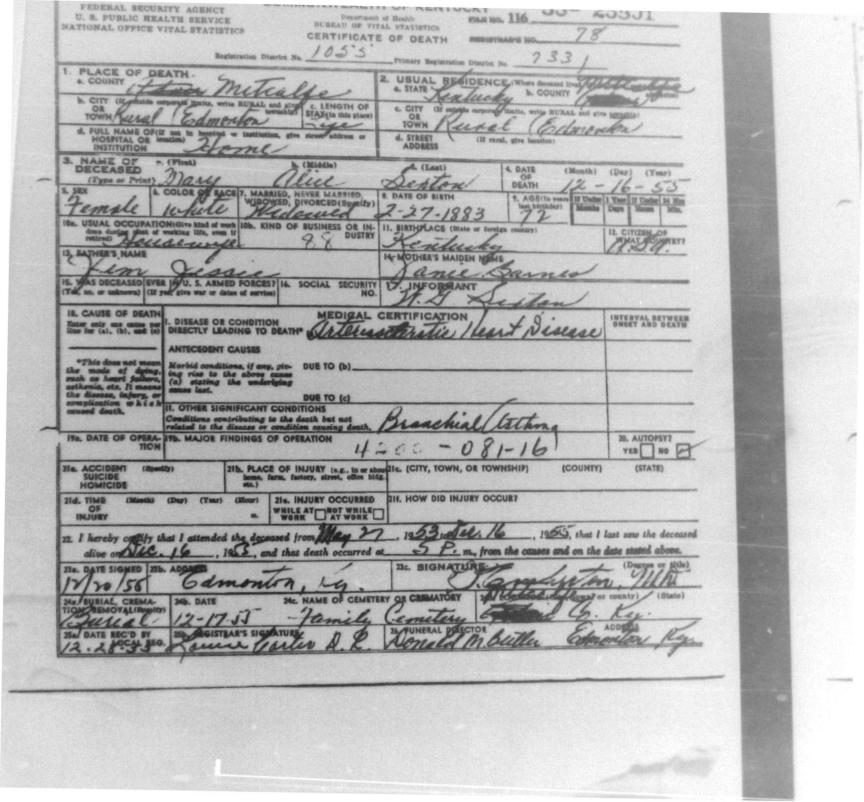 FEDERAL SECURITY AGENCY
U. S. PUBLIC HEALTH SERVICE
NATIONAL OFFICE VITAL STATISTICS
COMMONWEALTH OF KENTUCKY
Department of Health
BUREAU OF VITAL STATISTICS
CERTIFICATE OF DEATH
FILE NO. 116
REGISTRAR'S NO. 78
Registration District No. 1055 Primary Registration District No. 7331
1. PLACE OF DEATH
a. COUNTY Metcalfe
2. USUAL RESIDENCE (Where deceased lived
a. STATE Kentucky b. COUNTY
b. CITY (If outside corporate limits, write RURAL and give township)
OR TOWN Rural (Edmonton
c. LENGTH OF STAY (in this place) Life
c. CITY (If outside corporate limits, write RURAL and give township)
OR TOWN Rural (Edmonton
d. FULL NAME OF (If not in hospital or institution, give street address or location)
HOSPITAL OR INSTITUTION Home
d. STREET ADDRESS (If rural, give location)
3. NAME OF DECEASED (Type or Print)
a. (First) Mary b. (Middle) Alice c. (Last) Sexton
4. DATE OF DEATH (Month) (Day) (Year) 12-16-55
5. SEX Female
6. COLOR OR RACE White
7. MARRIED, NEVER MARRIED, WIDOWED, DIVORCED (Specify) Widowed
8. DATE OF BIRTH 2-27-1883
9. AGE (In years last birthday) 72
If Under 1 Year Months Days If Under 24 Hrs Hours Min.
10a. USUAL OCCUPATION (Give kind of work done during most of working life, even if retired) Housewife
10b. KIND OF BUSINESS OR INDUSTRY 98
11. BIRTHPLACE (State or foreign country) Kentucky
12. CITIZEN OF WHAT COUNTRY? USA
13. FATHER'S NAME Jim Jessie
14. MOTHER'S MAIDEN NAME Janie Barnes
15. WAS DECEASED EVER IN U. S. ARMED FORCES?
(Yes, no, or unknown) (If yes, give war or dates of service)
16. SOCIAL SECURITY NO.
17. INFORMANT W. G. Sexton
18. CAUSE OF DEATH
Enter only one cause per line for (a), (b), and (c)
MEDICAL CERTIFICATION
INTERVAL BETWEEN ONSET AND DEATH
I. DISEASE OR CONDITION
DIRECTLY LEADING TO DEATH* Arteriosclerotic Heart Disease
*This does not mean the mode of dying, such as heart failure, asthenia, etc. It means the disease, injury, or complication which caused death.
ANTECEDENT CAUSES
Morbid conditions, if any, giving rise to the above cause (a) stating the underlying cause last.
DUE TO (b)
DUE TO (c)
II. OTHER SIGNIFICANT CONDITIONS
Conditions contributing to the death but not related to the disease or condition causing death. Bronchial Asthma
19a. DATE OF OPERATION
19b. MAJOR FINDINGS OF OPERATION
4200 - 081-16
20. AUTOPSY?
YES NO
21a. ACCIDENT SUICIDE HOMICIDE (Specify)
21b. PLACE OF INJURY (e.g., in or about home, farm, factory, street, office bldg. etc.)
21c. (CITY, TOWN, OR TOWNSHIP) (COUNTY) (STATE)
21d. TIME OF INJURY (Month) (Day) (Year) (Hour) m.
21e. INJURY OCCURRED
WHILE AT WORK NOT WHILE AT WORK
21f. HOW DID INJURY OCCUR?
22. I hereby certify that I attended the deceased from May 27, 1953 to Dec. 16, 1955, that I last saw the deceased
alive on Dec. 16, 1955, and that death occurred at 5 P. m., from the causes and on the date stated above.
23a. DATE SIGNED 12/20/55
23b. ADDRESS Edmonton, Ky.
23c. SIGNATURE (Degree or title)
24a. BURIAL, CREMATION, REMOVAL (Specify) Burial
24b. DATE 12-17-55
24c. NAME OF CEMETERY OR CREMATORY Family Cemetery
or county) (State) Co. Ky.
25a. DATE REC'D BY LOCAL REG. 12-28-55
25b. REGISTRAR'S SIGNATURE Louise Carter D. R.
26. FUNERAL DIRECTOR Donald M. Butler
ADDRESS Edmonton Ky.